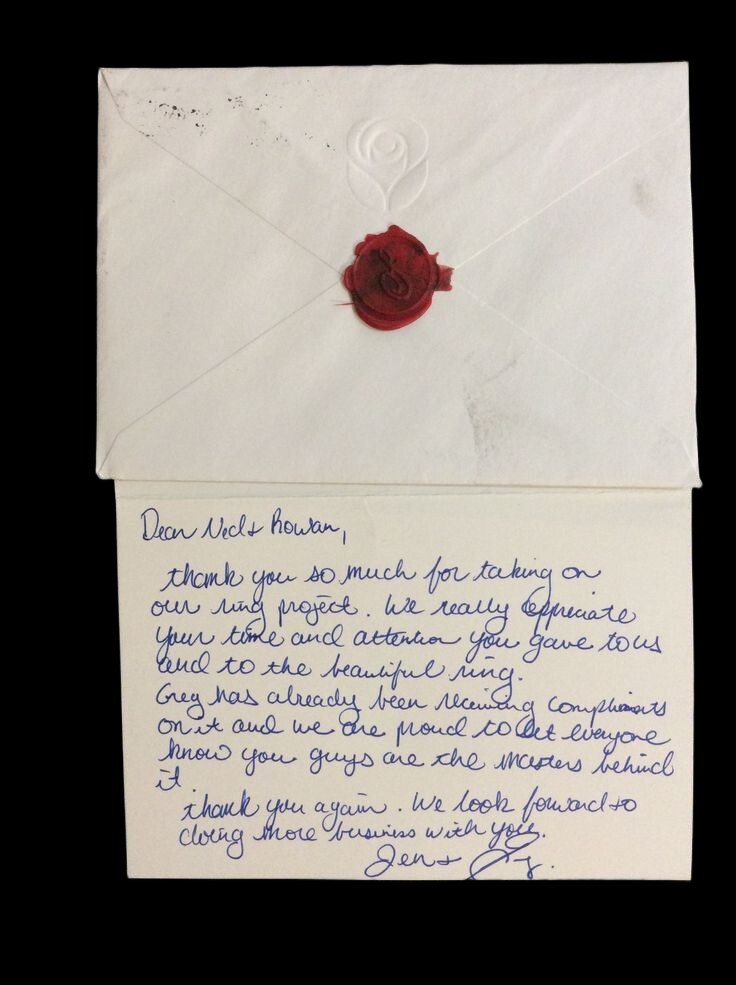 Dear Ned & Rowan,
thank you so much for taking on
our ring project. We really appreciate
your time and attention you gave to us
and to the beautiful ring.
Greg has already been receiving compliments
on it and we are proud to let everyone
know you guys are the masters behind
it.
thank you again. We look forward to
doing more business with you.
Jen &